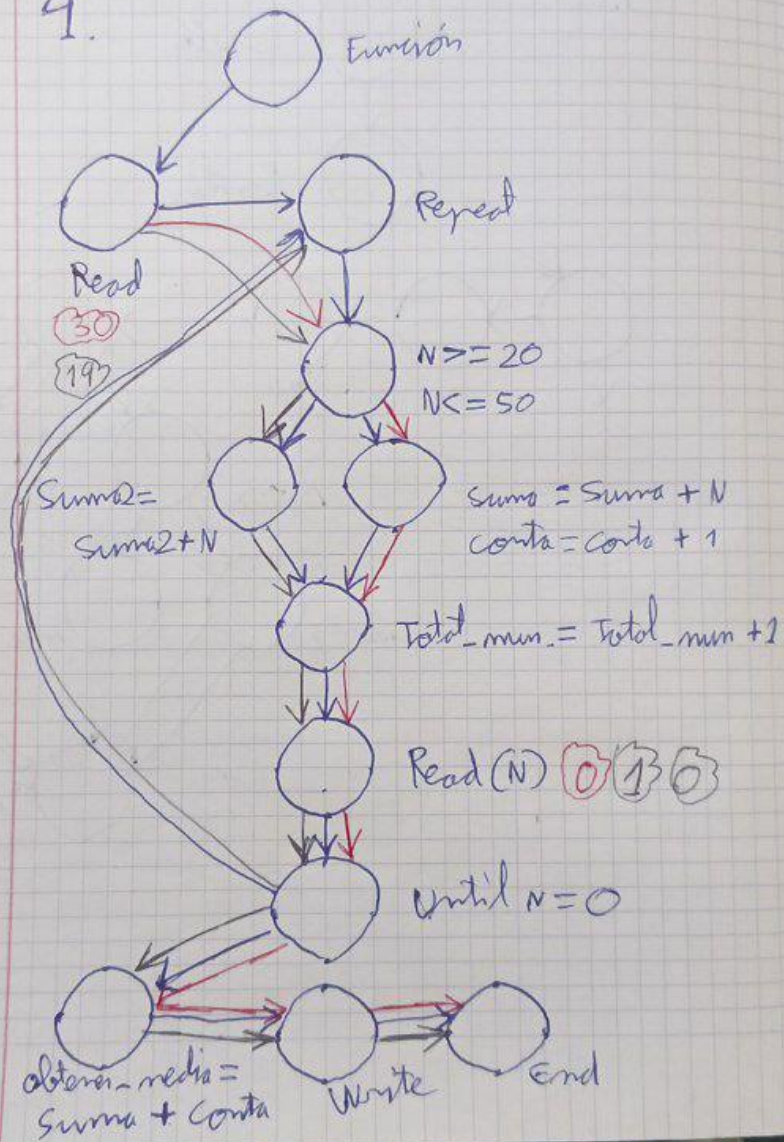 1.
Función
Repeat
Read
30
19
N>=20
N<=50
Suma2=
Suma2+N
Suma = Suma + N
conta = conta + 1
Total_num = Total_num + 1
Read (N) 0 1 0
Until N=0
obtener_media =
Suma + Conta
Write
End